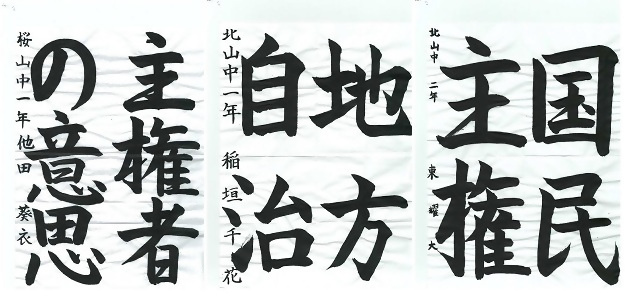 国民
主権
北山中 二年 東 曜大
地方
自治
北山中一年 稲垣千花
主権者
の意思
桜山中一年 他田 葵衣